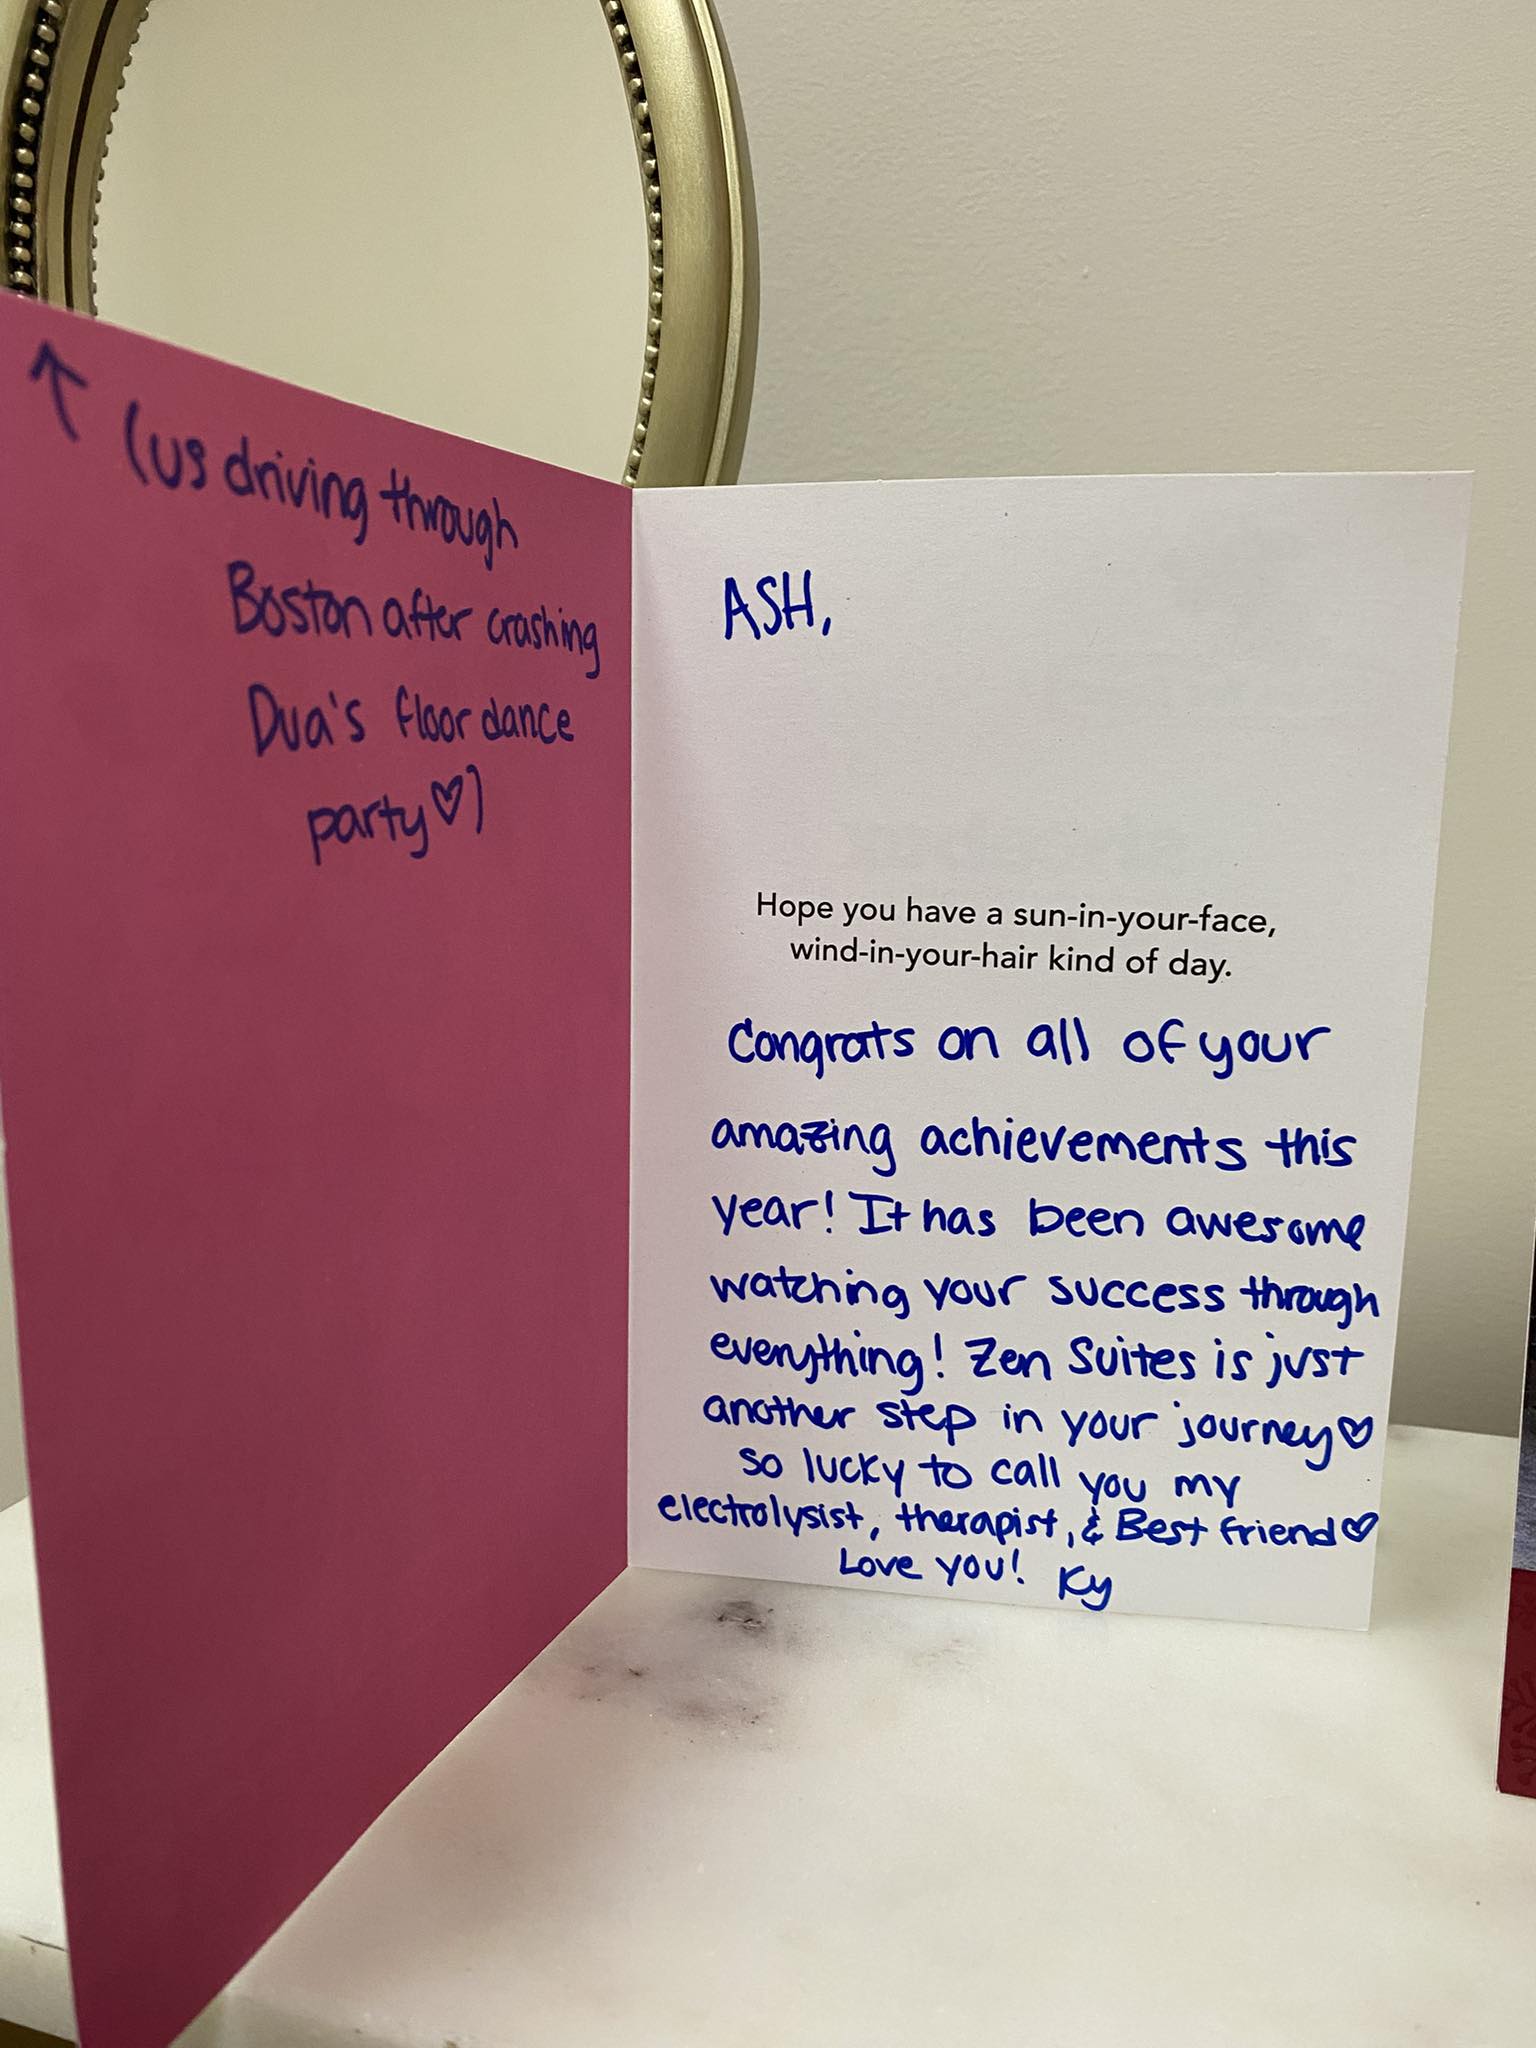 (us driving through
Boston after crashing
Dua's floor dance
party♡)
ASH,
Hope you have a sun-in-your-face,
wind-in-your-hair kind of day.
Congrats on all of your
amazing achievements this
year! It has been awesome
watching your success through
everything! Zen Suites is just
another step in your journey♡
so lucky to call you my
electrolysist, therapist, & Best friend♡
Love you! Ky